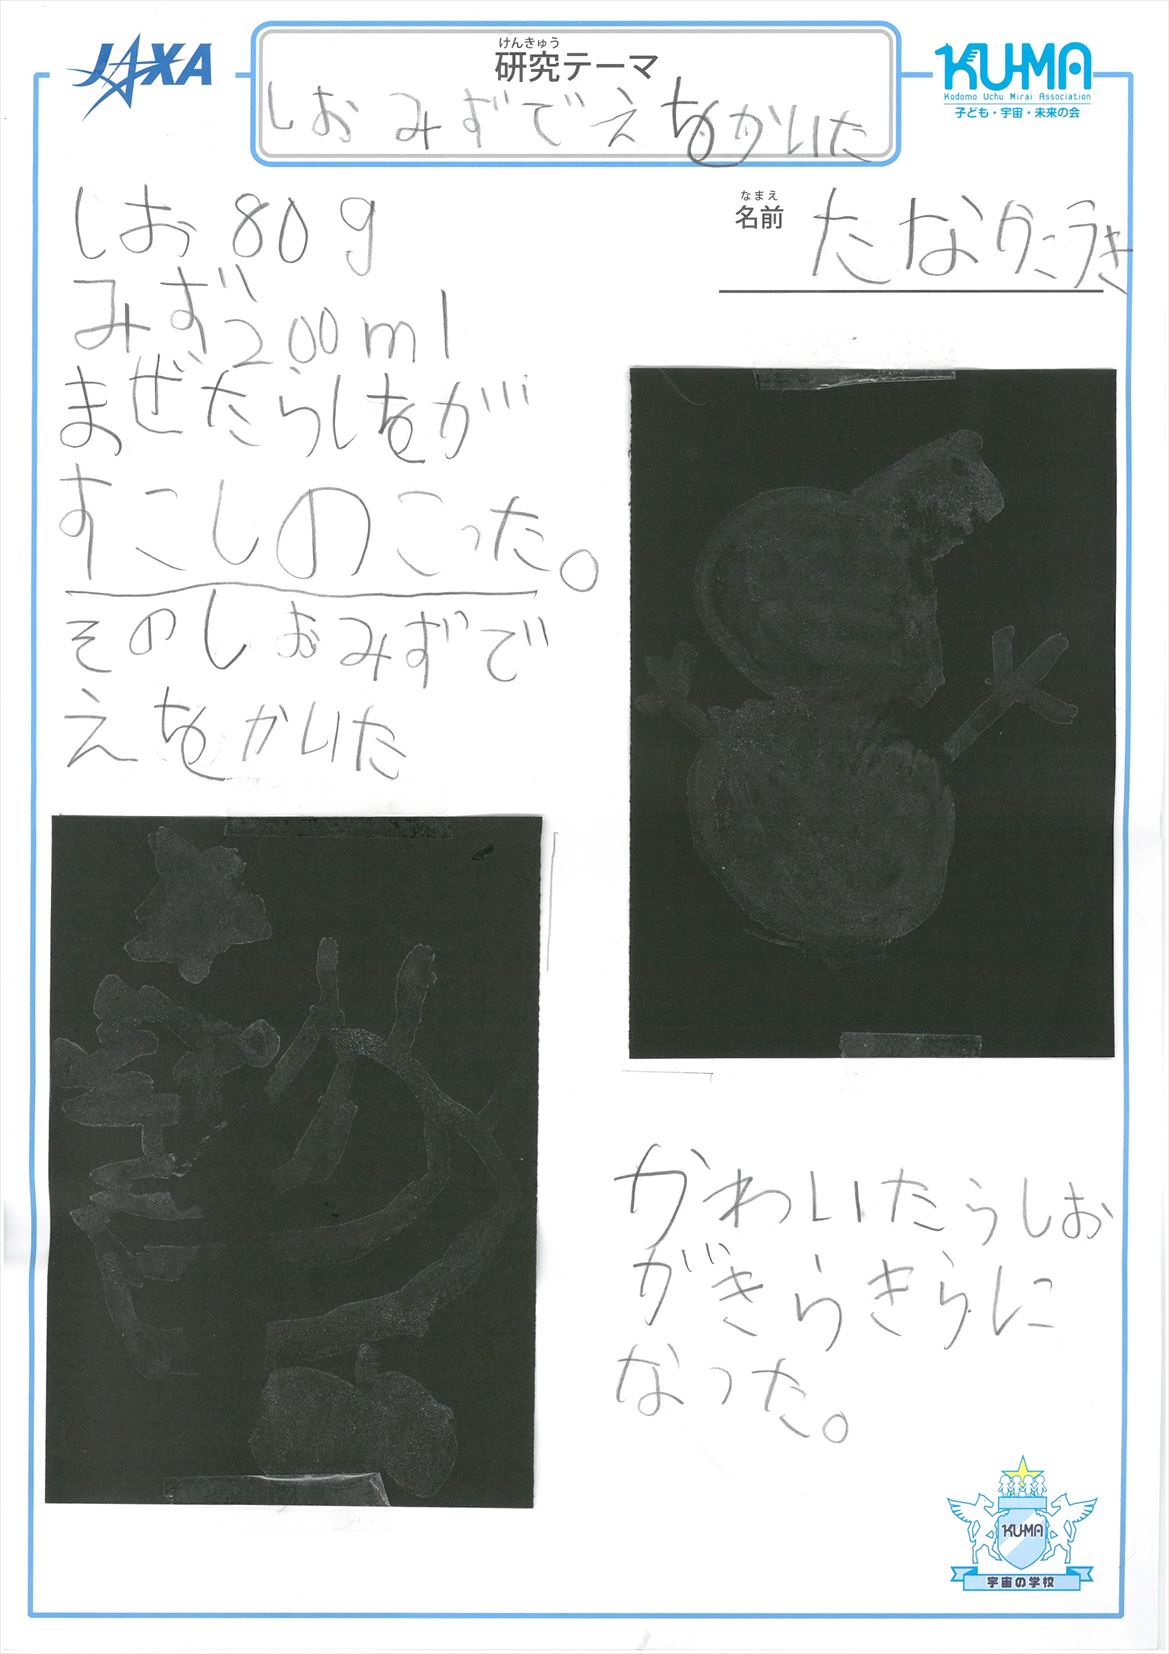 JAXA
けんきゅう
研究テーマ
しおみずでえをかいた
KU-MA
Kodomo Uchu Mirai Association
子ども・宇宙・未来の会
なまえ
名前
たなかこうき
しお80g
みず200ml
まぜたらしをが
すこしのこった。
そのしおみずで
えをかいた
かわいたらしお
がきらきらに
なった。
KU-MA
宇宙の学校